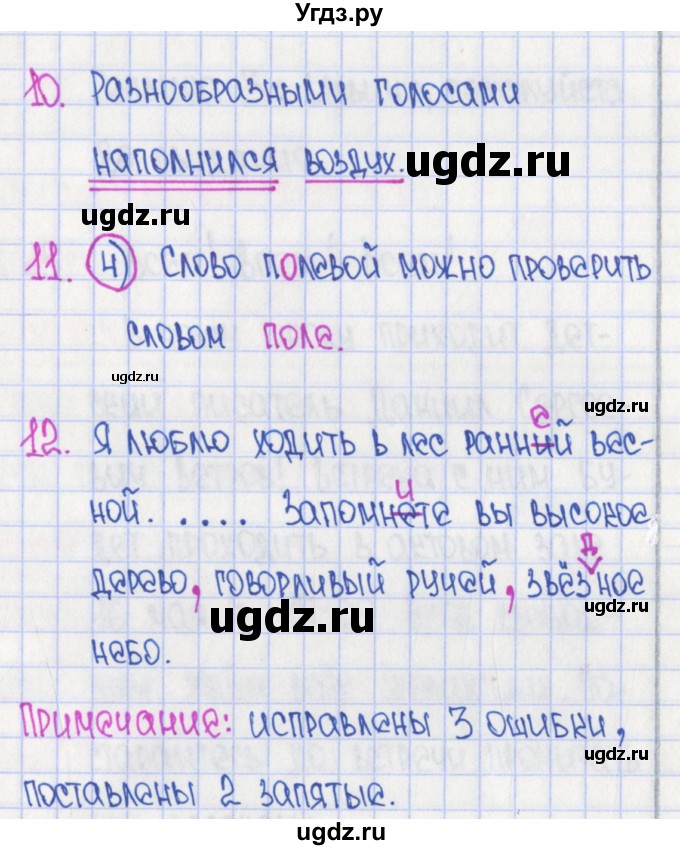 Угдз.ру
10. Разнообразными голосами
наполнился воздух.
ugdz.ru
ugdz.ru
11. 4) Слово полевой можно проверить
словом поле.
ugdz.ru
ugdz.ru
е
12. Я люблю ходить в лес ранний вес-
и
ной. .... Запомнете вы высокое
д
дерево, говорливый ручей, звёзное
ugdz.ru
ugdz.ru
небо.
Примечание: исправлены 3 ошибки,
ugdz.ru
поставлены 2 запятые.
ugdz.ru